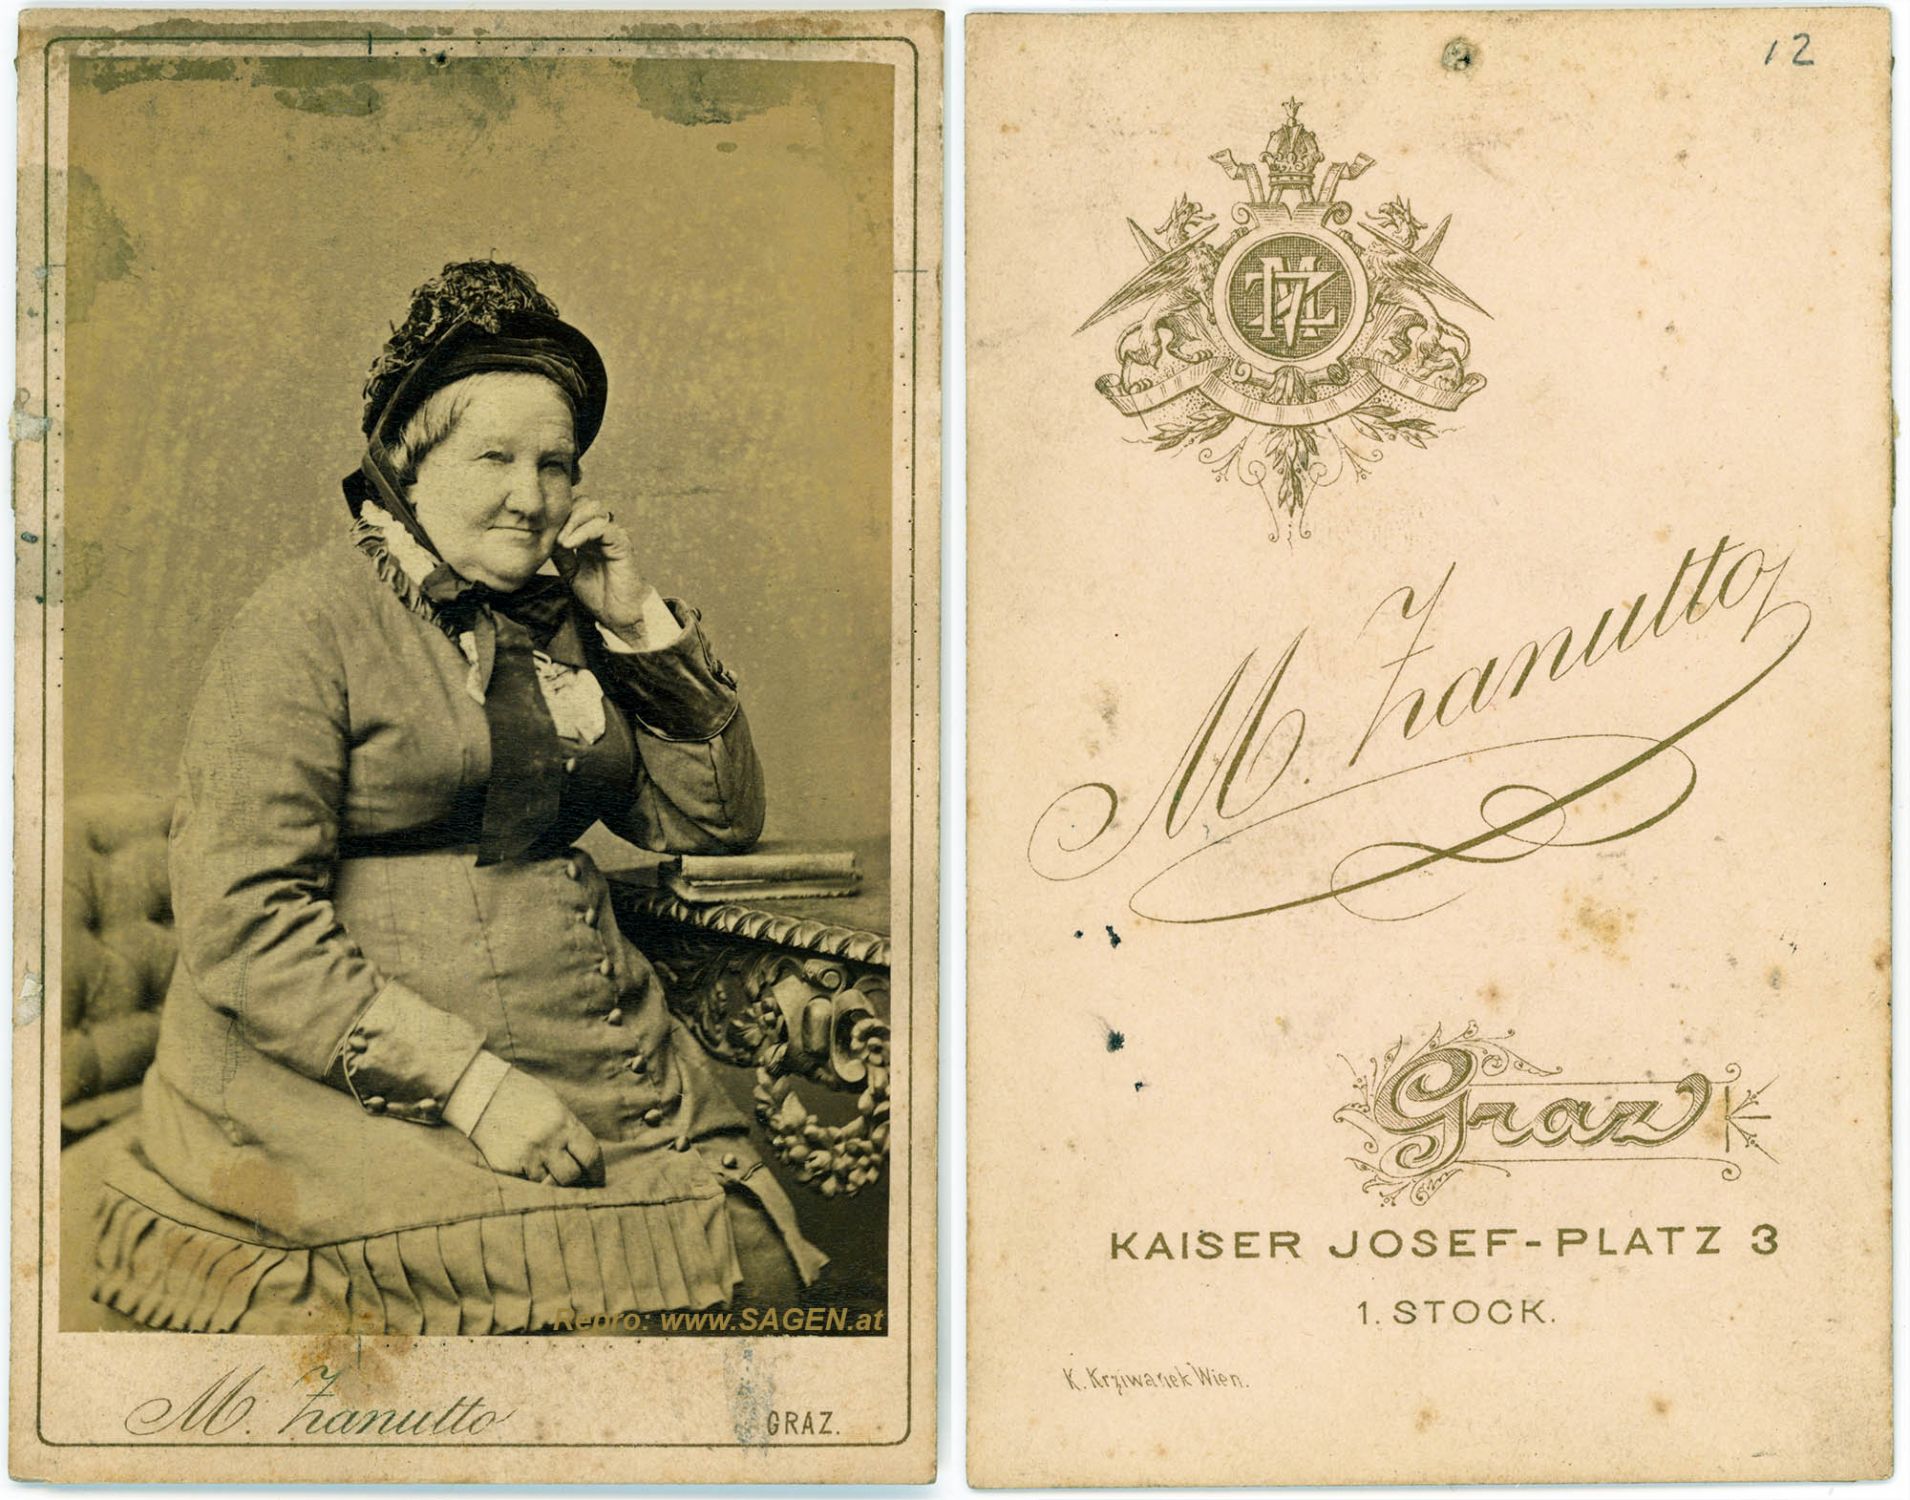 Repro: www.SAGEN.at
M. Zanutto
GRAZ.
12
M. Zanutto
Graz
KAISER JOSEF-PLATZ 3
1. STOCK.
K. Krziwanek Wien.